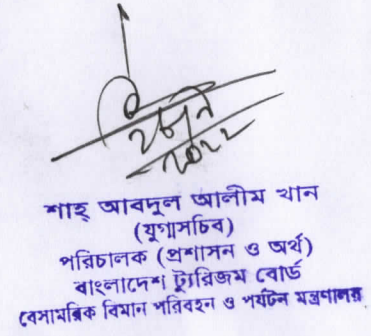 ২০২২
শাহ্ আবদুল আলীম খান
(যুগ্মসচিব)
পরিচালক (প্রশাসন ও অর্থ)
বাংলাদেশ ট্যুরিজম বোর্ড
বেসামরিক বিমান পরিবহন ও পর্যটন মন্ত্রণালয়